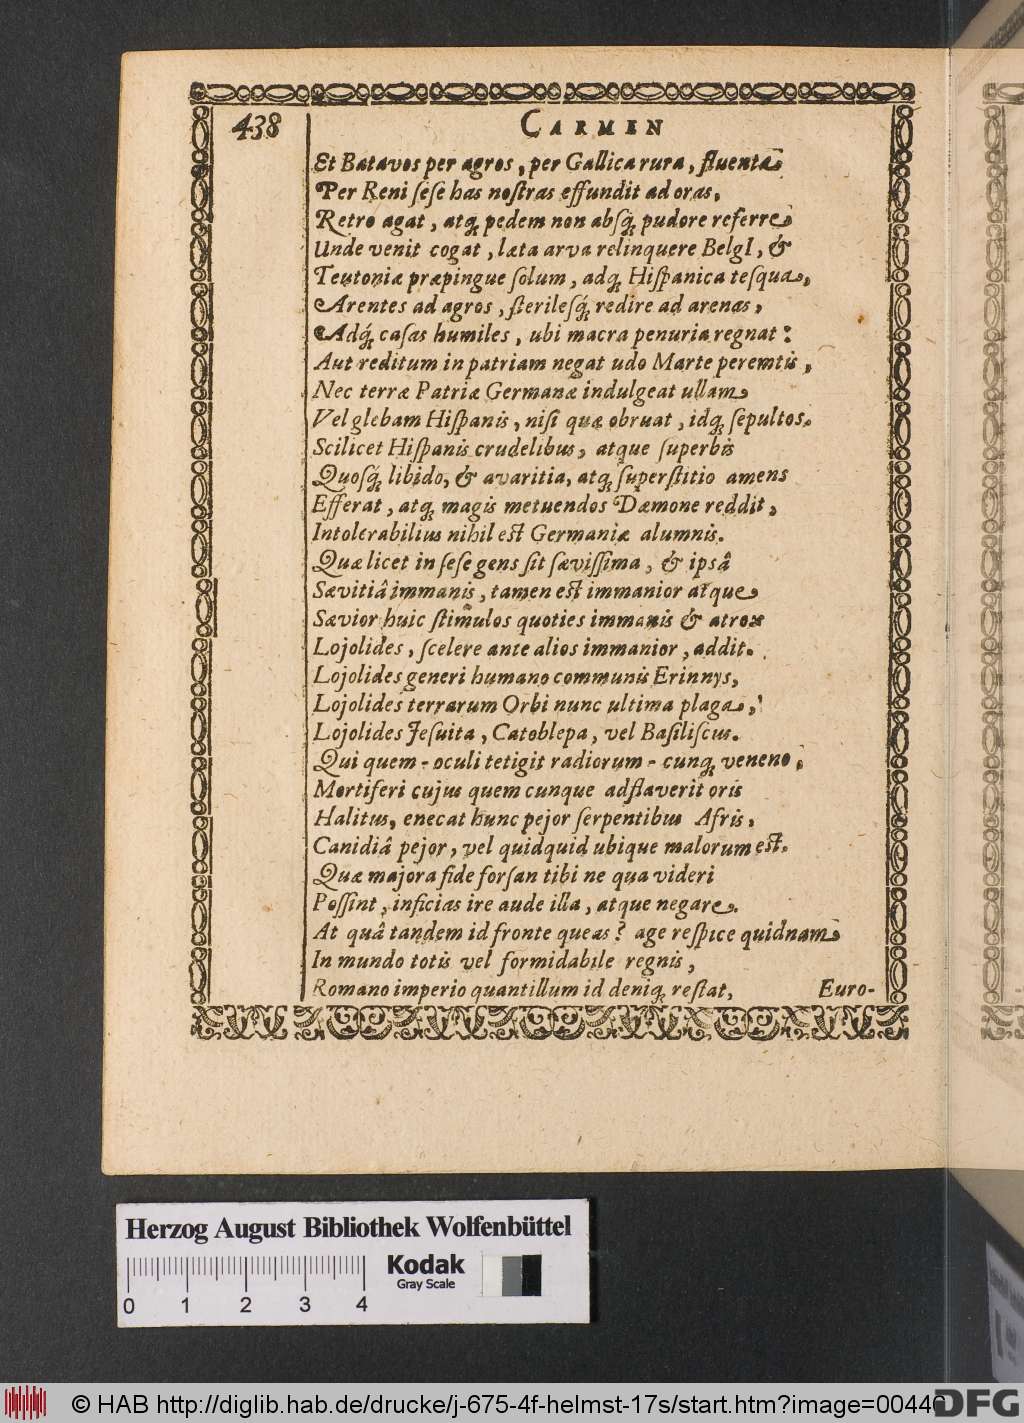 438
CARMEN
Et Batavos per agros, per Gallica rura, fluenta
Per Reni ſeſe has noſtras effundit ad oras,
Retro agat, atq; pedem non abſq; pudore referre
Unde venit cogat, læta arva relinquere BelgI, &
Teutoniæ præpingue ſolum, adq; Hiſpanica teſqua,
Arentes ad agros, ſterileſq́; redire ad arenas,
Adq́; caſas humiles, ubi macra penuria regnat:
Aut reditum in patriam negat udo Marte peremtis,
Nec terræ Patriæ Germanæ indulgeat ullam
Vel glebam Hiſpanis, niſi quæ obruat, idq; ſepultos.
Scilicet Hiſpanis crudelibus, atque ſuperbis
Quoſq́; libido, & avaritia, atq; ſuperſtitio amens
Efferat, atq; magis metuendos Dæmone reddit,
Intolerabilius nihil eſt Germaniæ alumnis.
Quæ licet in ſeſe gens ſit ſæviſſima, & ipsâ
Sævitiâ immanis, tamen eſt immanior atque
Sævior huic ſtimulos quoties immanis & atrox
Lojolides, ſcelere ante alios immanior, addit.
Lojolides generi humano communis Erinnys,
Lojolides terrarum Orbi nunc ultima plaga,
Lojolides Jeſuita, Catoblepa, vel Baſiliſcus.
Qui quem - oculi tetigit radiorum - cunq; veneno,
Mortiferi cujus quem cunque adflaverit oris
Halitus, enecat hunc pejor ſerpentibus Afris,
Canidiâ pejor, vel quidquid ubique malorum eſt.
Quæ majora fide forſan tibi ne qua videri
Poſſint, inficias ire aude illa, atque negare.
At quâ tandem id fronte queas? age reſpice quidnam
In mundo totis vel formidabile regnis,
Romano imperio quantillum id deniq; reſtat,
Euro-
Herzog August Bibliothek Wolfenbüttel
Kodak
Gray Scale
0 1 2 3 4
© HAB http://diglib.hab.de/drucke/j-675-4f-helmst-17s/start.htm?image=00446
DFG